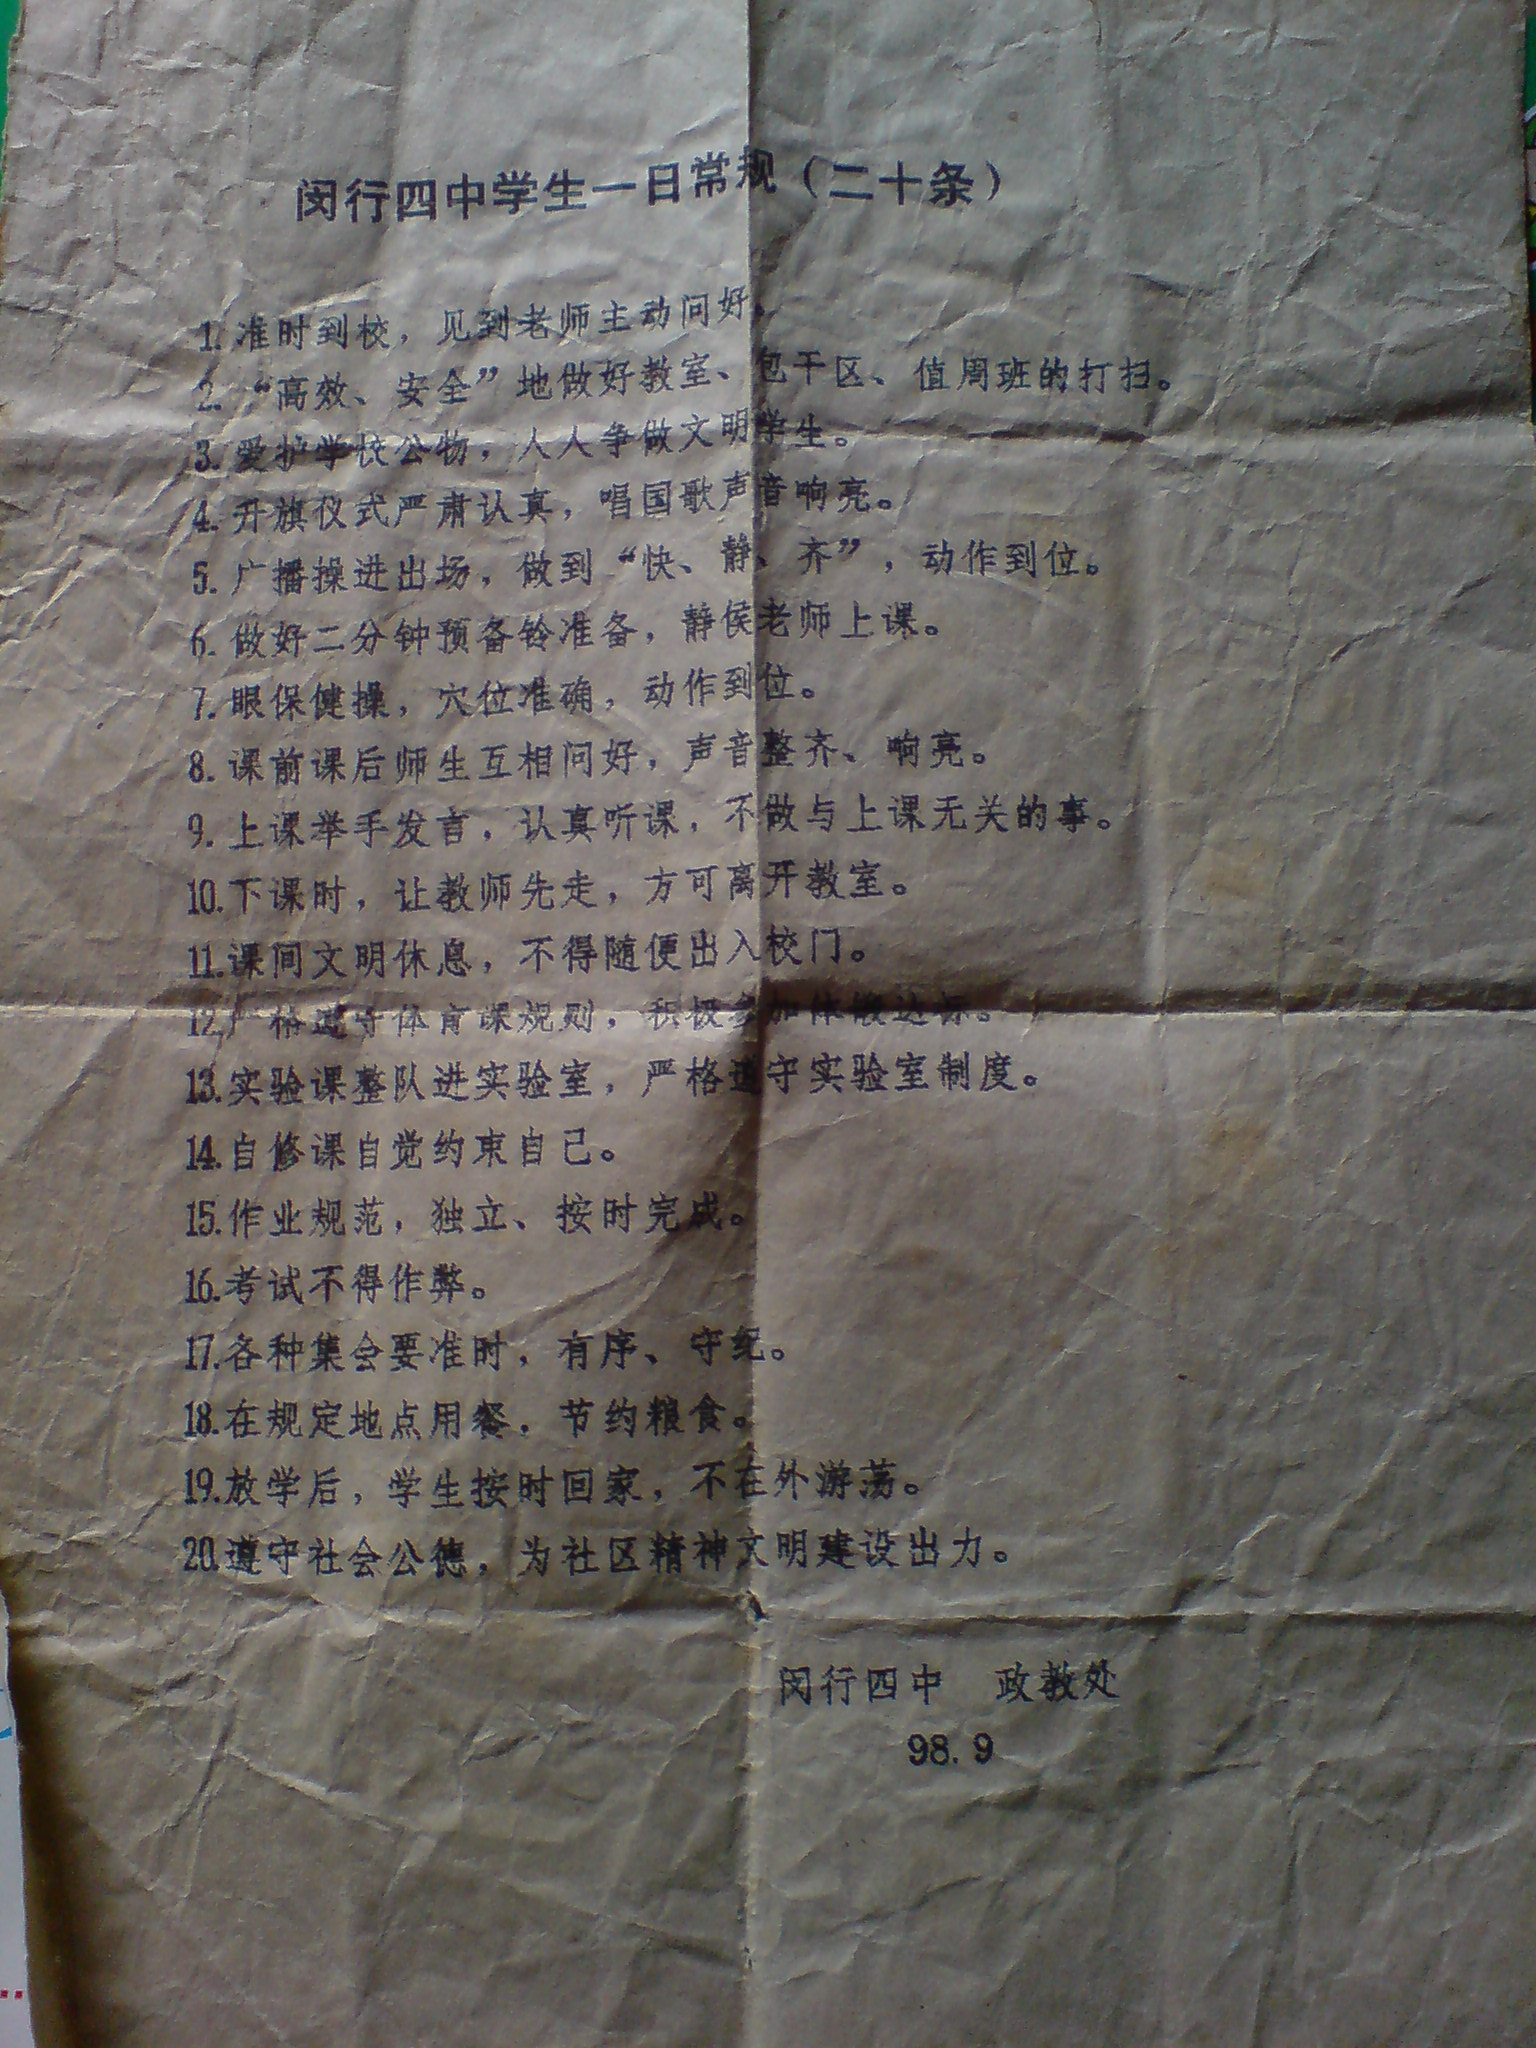 闵行四中学生一日常规（二十条）
1. 准时到校，见到老师主动问好。
2. “高效、安全”地做好教室、包干区、值周班的打扫。
3. 爱护学校公物，人人争做文明学生。
4. 升旗仪式严肃认真，唱国歌声音响亮。
5. 广播操进出场，做到“快、静、齐”，动作到位。
6. 做好二分钟预备铃准备，静侯老师上课。
7. 眼保健操，穴位准确，动作到位。
8. 课前课后师生互相问好，声音整齐、响亮。
9. 上课举手发言，认真听课，不做与上课无关的事。
10. 下课时，让教师先走，方可离开教室。
11. 课间文明休息，不得随便出入校门。
12. 严格遵守体育课规则，积极参加体锻达标。
13. 实验课整队进实验室，严格遵守实验室制度。
14. 自修课自觉约束自己。
15. 作业规范，独立、按时完成。
16. 考试不得作弊。
17. 各种集会要准时，有序、守纪。
18. 在规定地点用餐，节约粮食。
19. 放学后，学生按时回家，不在外游荡。
20. 遵守社会公德，为社区精神文明建设出力。
闵行四中 政教处
98.9